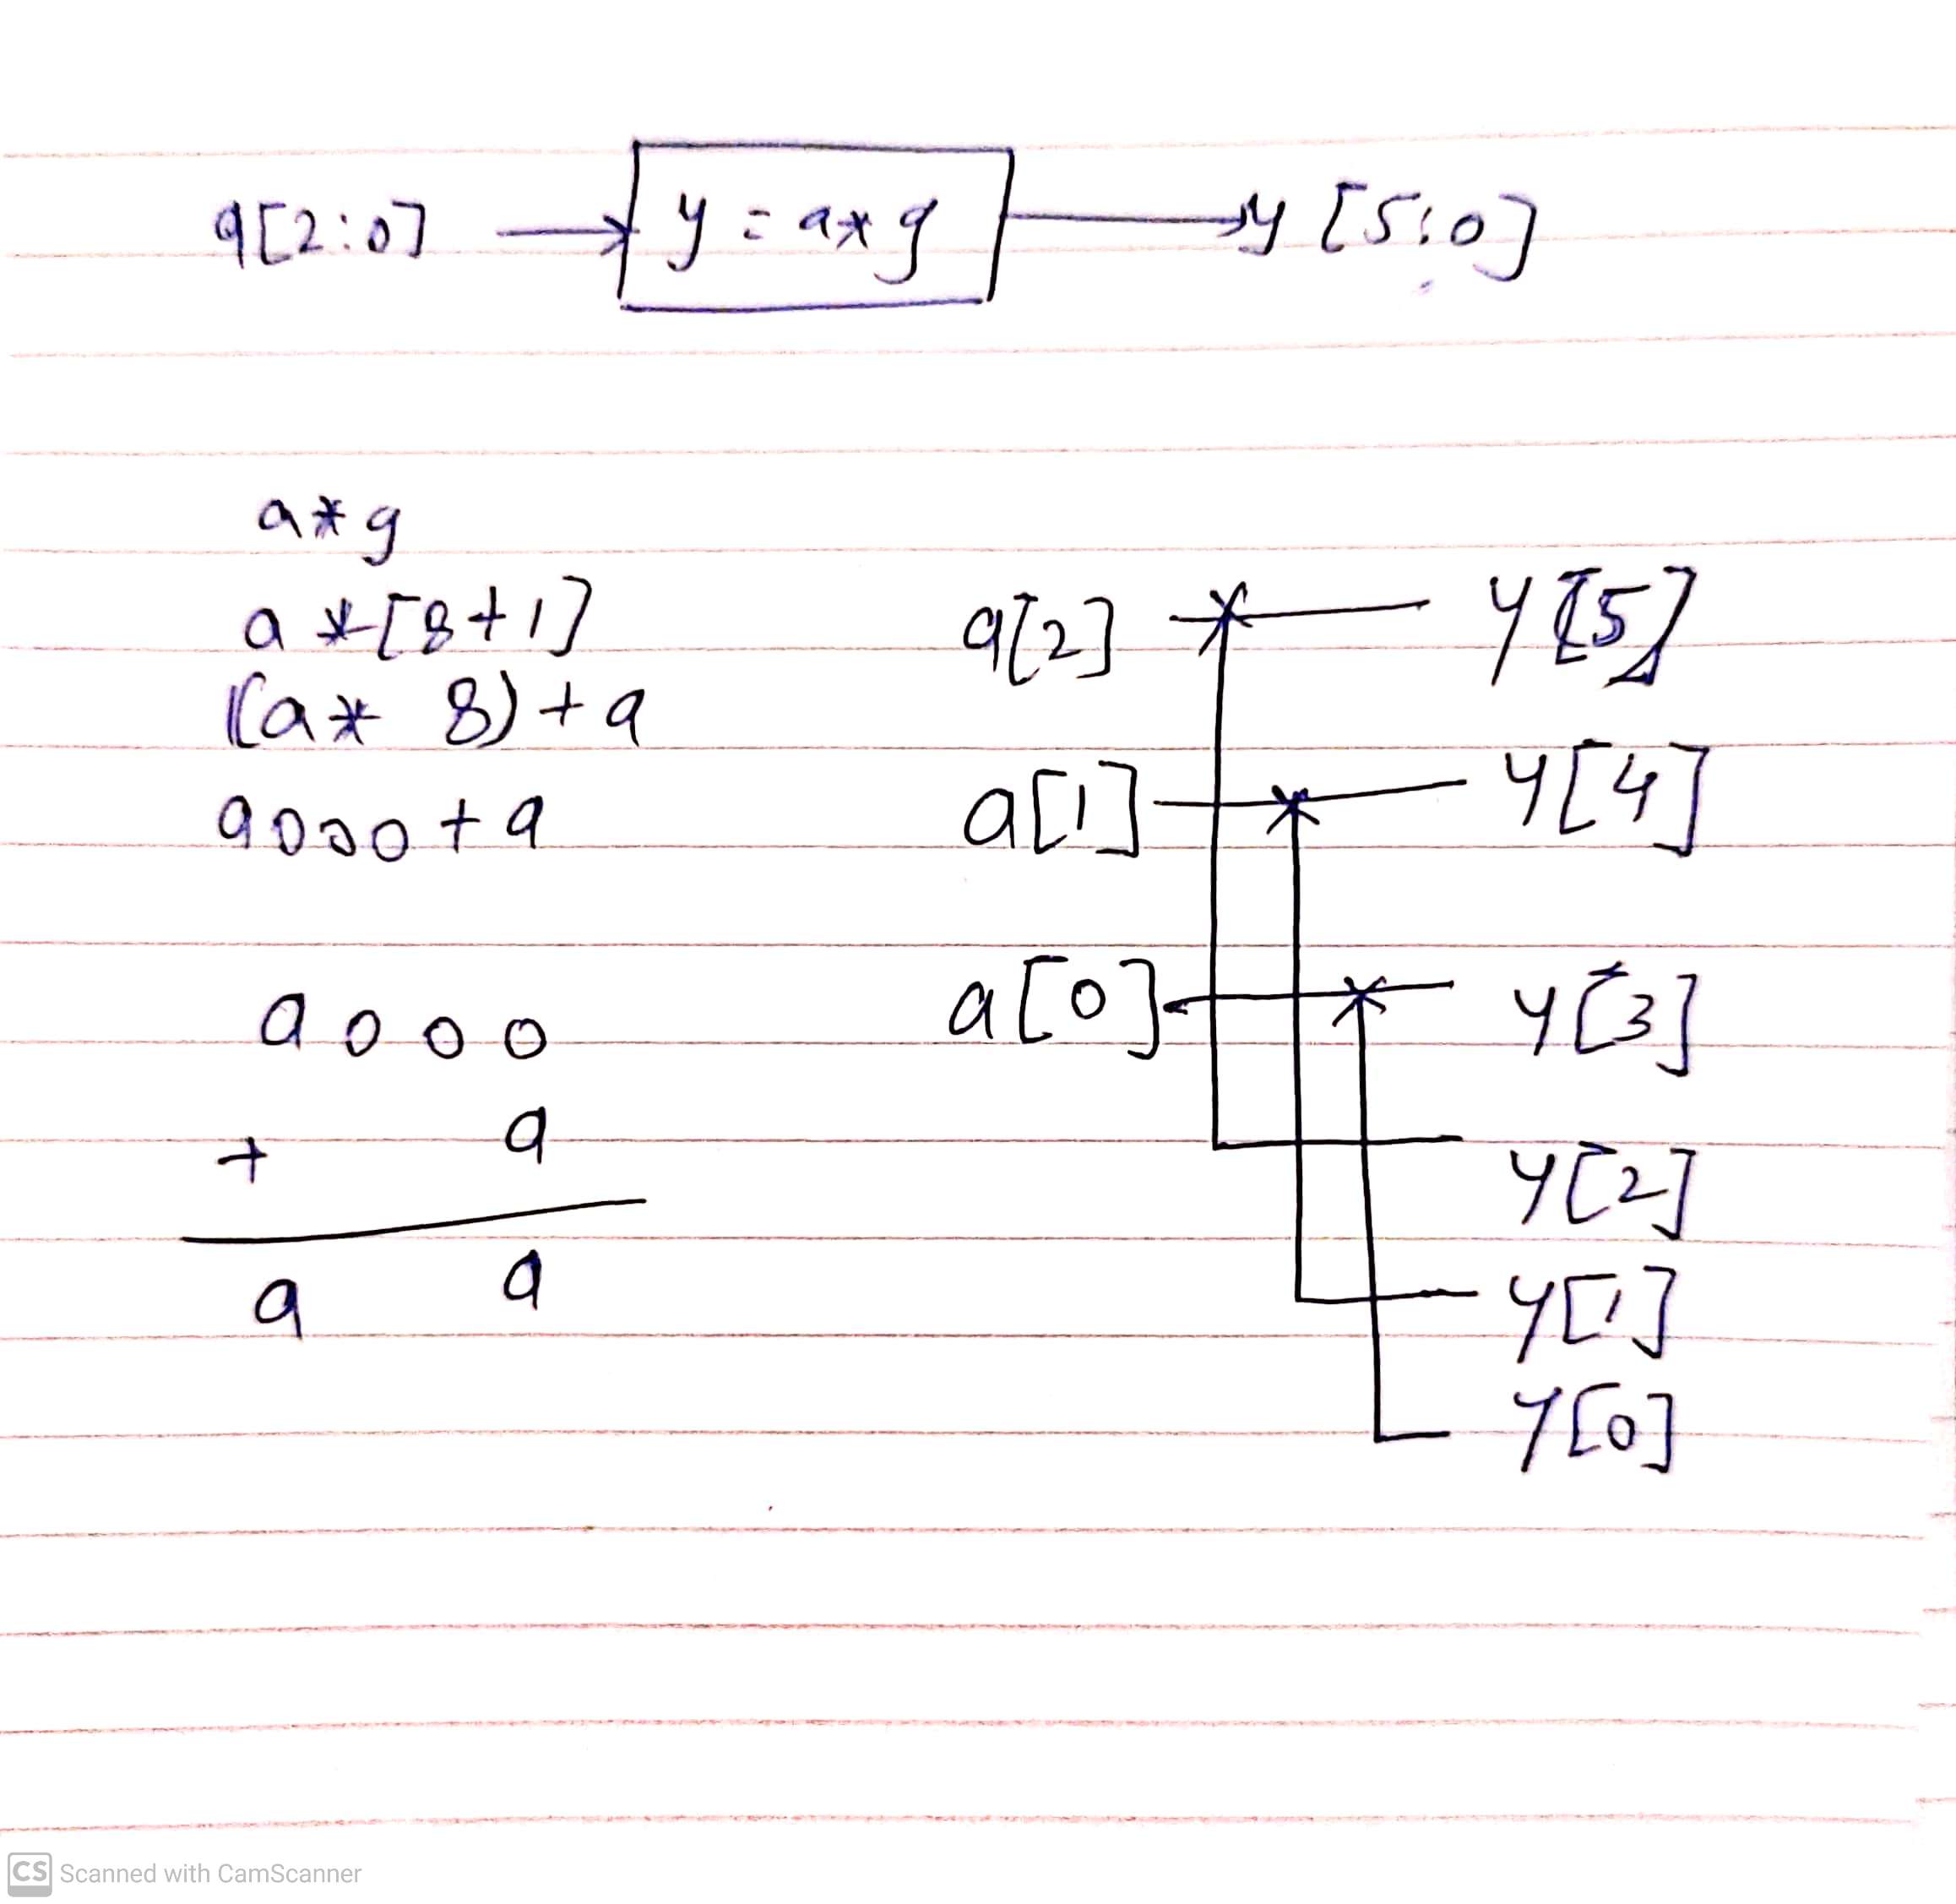 a[2:0] y = a*9 y[5:0]
a*9
a*[8+1]
(a* 8)+a
a000+a
a000
+ a
a a
a[2] y[5]
a[1] y[4]
a[0] y[3]
y[2]
y[1]
y[0]
CS Scanned with CamScanner